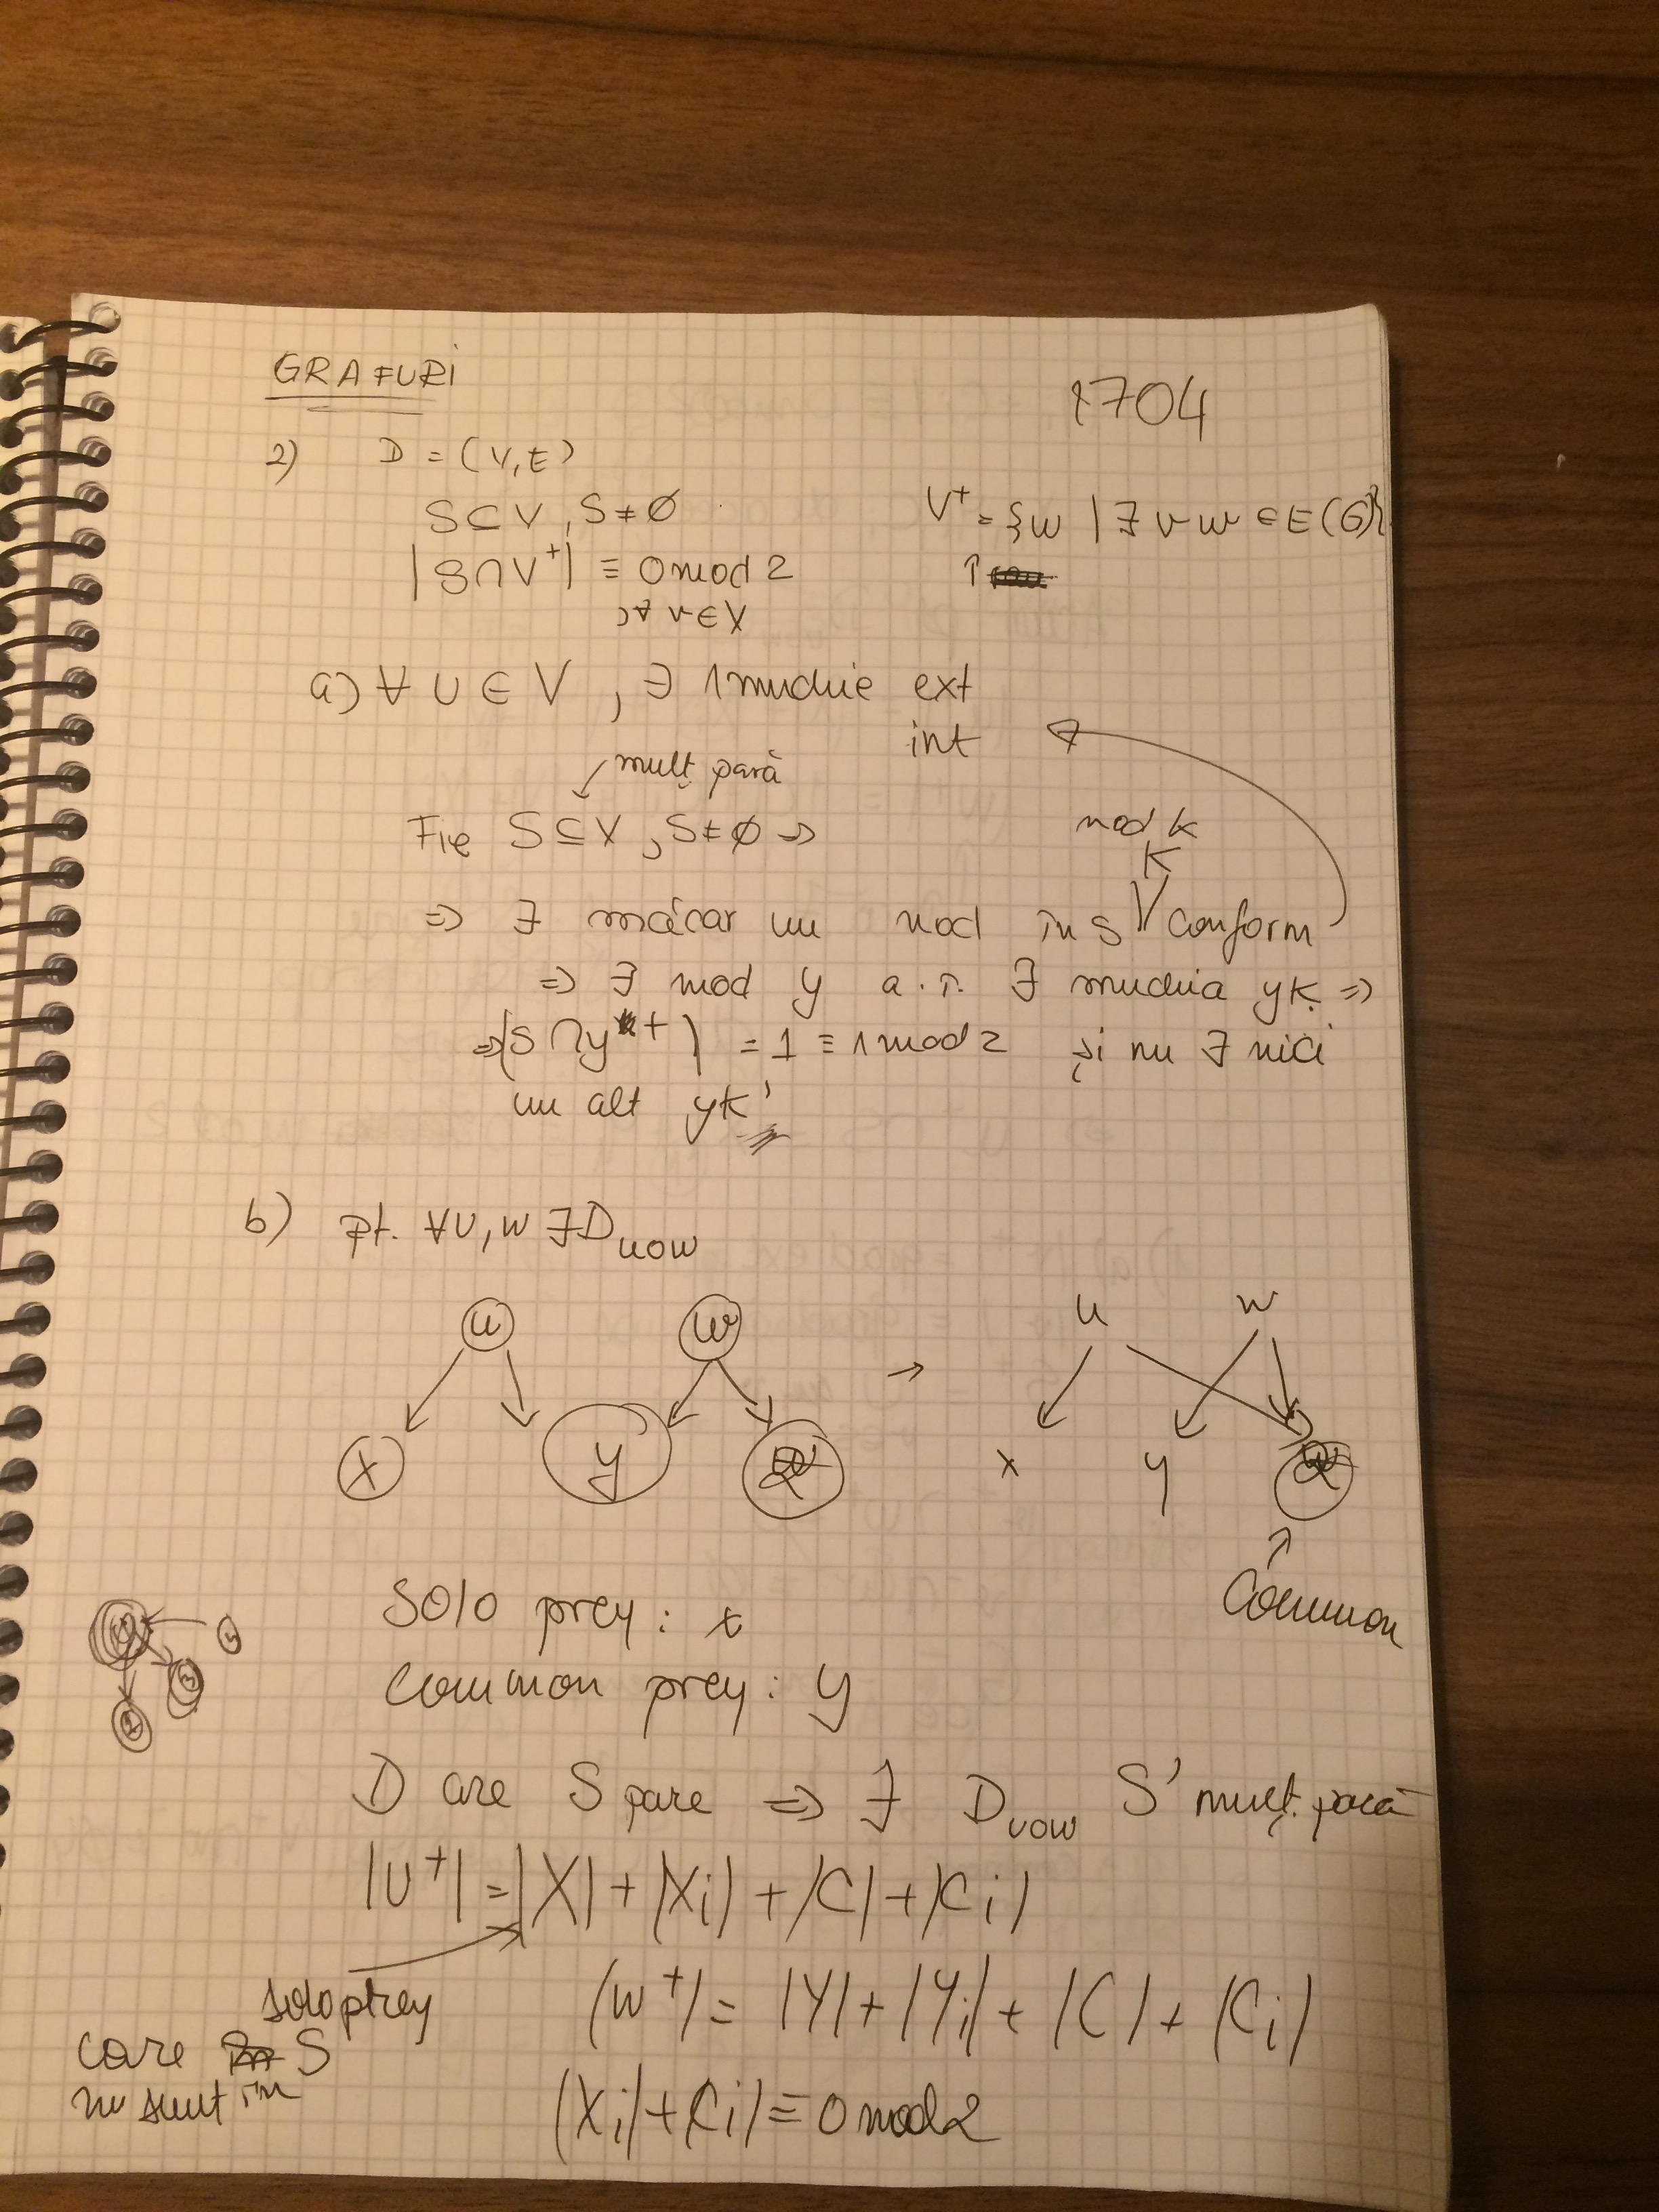 GRAFURI
1704
2) D = (V, E)
S ⊆ V, S ≠ ∅
V⁺ = {w | ∃ v w ∈ E(G)}
|S ∩ V⁺| ≡ 0 mod 2
, ∀ v ∈ V
a) ∀ U ∈ V, ∃ 1 muchie ext
int
mulț pară
Fie S ⊆ V, S ≠ ∅ ⇒
nod k
⇒ ∃ măcar un nod în S conform
⇒ ∃ nod y a.î. ∃ muchia yk ⇒
⇒ |S ∩ y⁺| = 1 ≡ 1 mod 2 și nu ∃ nici
un alt yk'
b) pt. ∀ U, W ∃ D_uow
u w → u w
x y x y
Common
Solo prey: x
Common prey: y
D are S pare ⇒ ∃ D_uow S' mulț. pară
|U⁺| = |X| + |Xi| + |C| + |Ci|
solo prey
|W⁺| = |Y| + |Yi| + |C| + |Ci|
care S
nu sunt în
|Xi| + |Ci| ≡ 0 mod 2